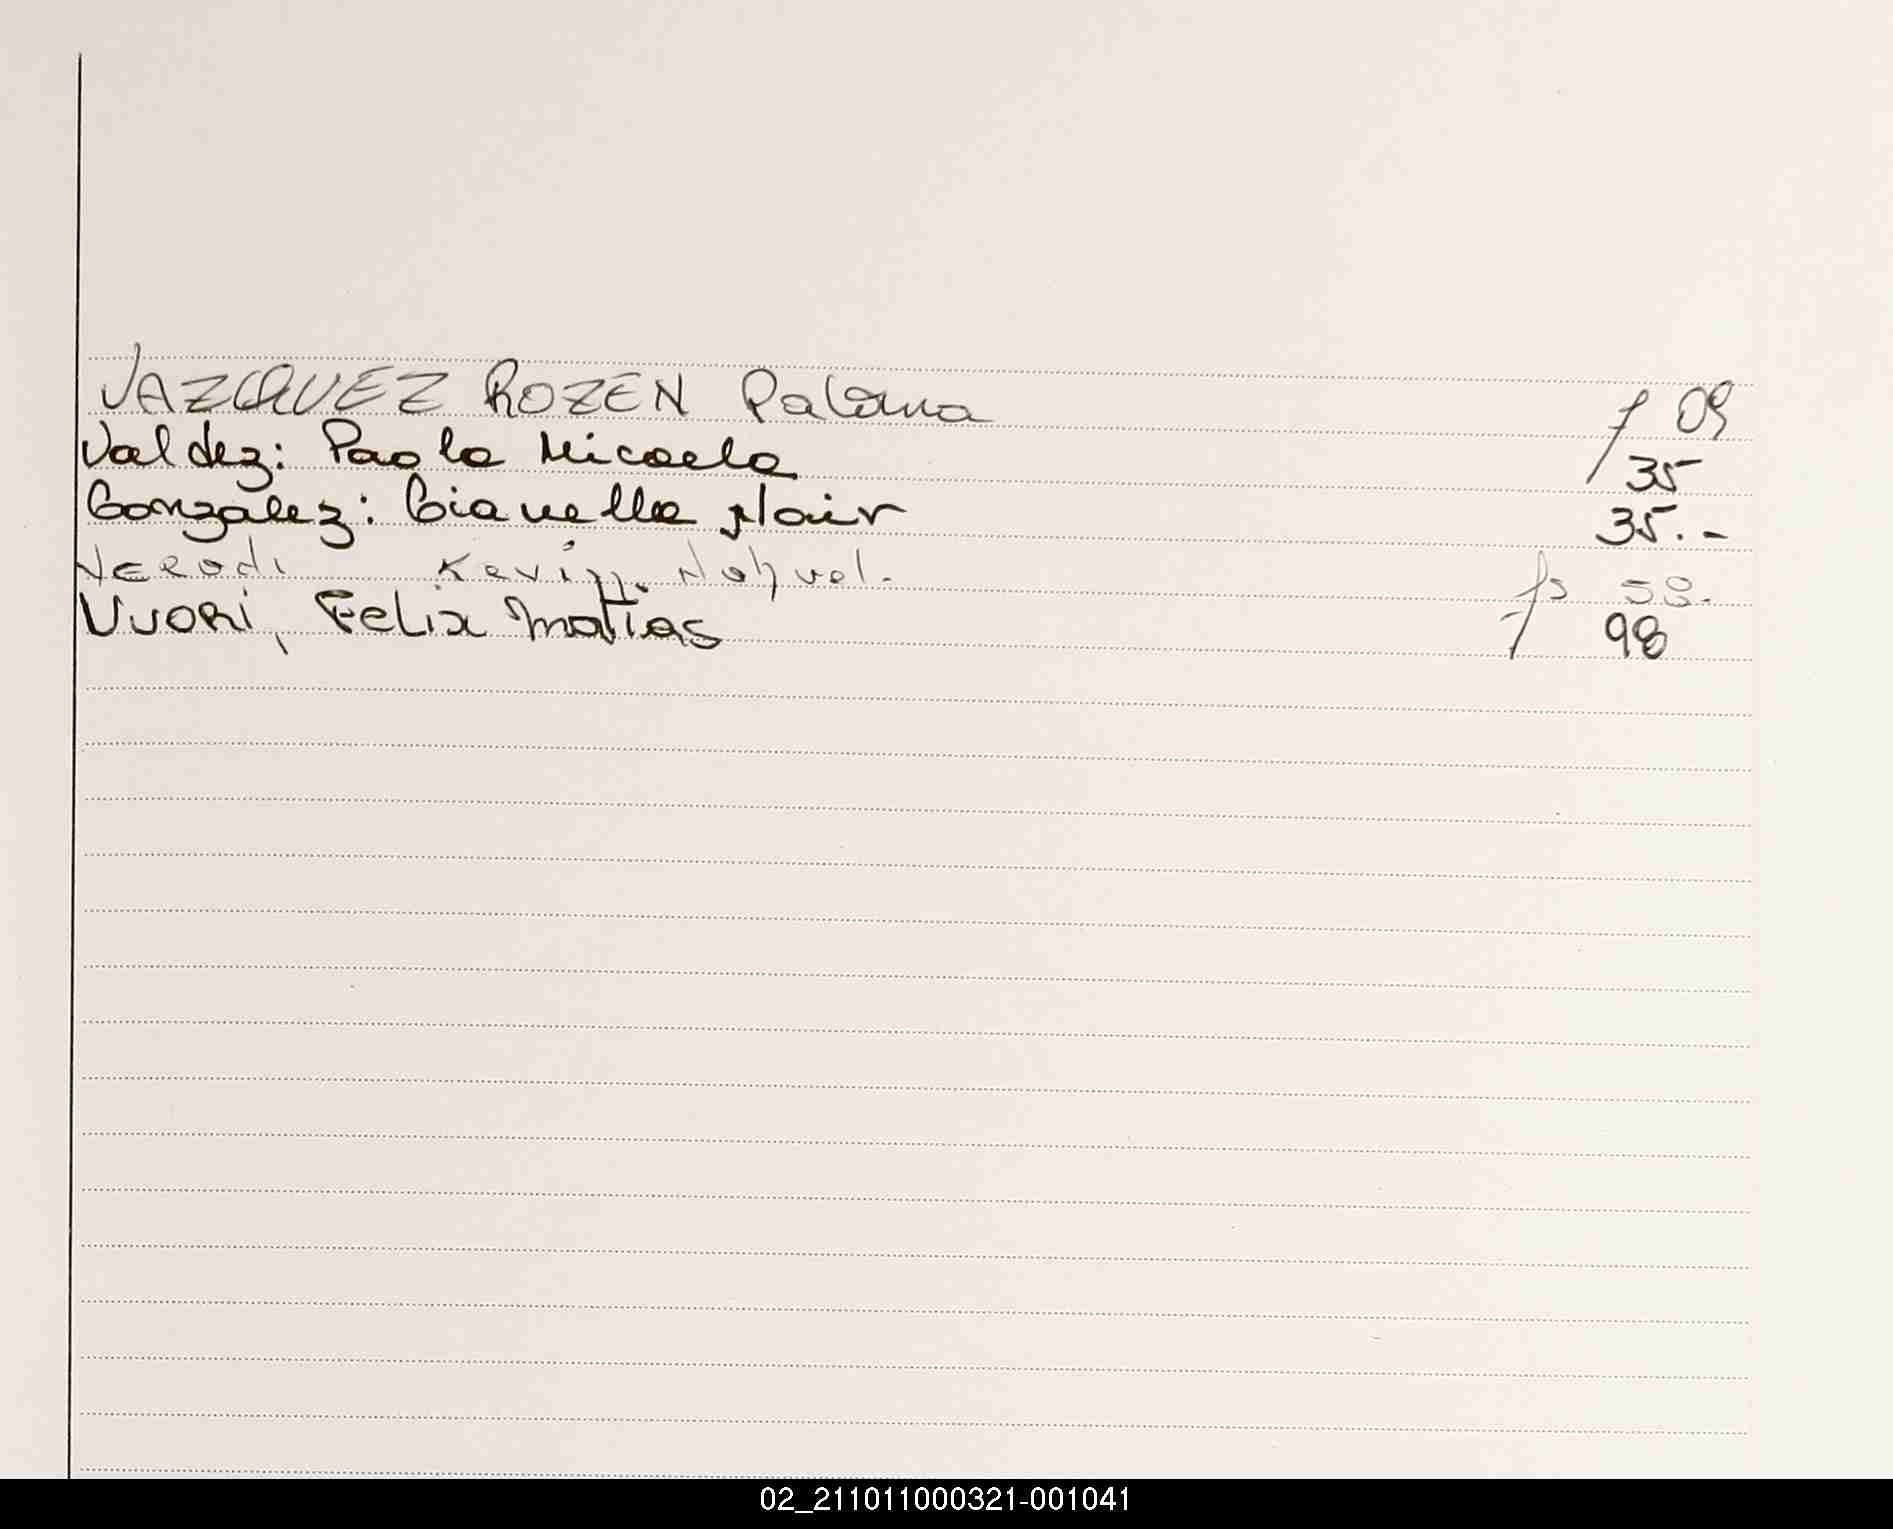 VAZQUEZ ROZEN Paloma f 09
Valdez: Paola Micaela 35
Gonzalez: Gianella Nair 35.-
Verodi Kevin Nahuel. fs 58.
Vuori, Felix Matias f 98
02_211011000321-001041